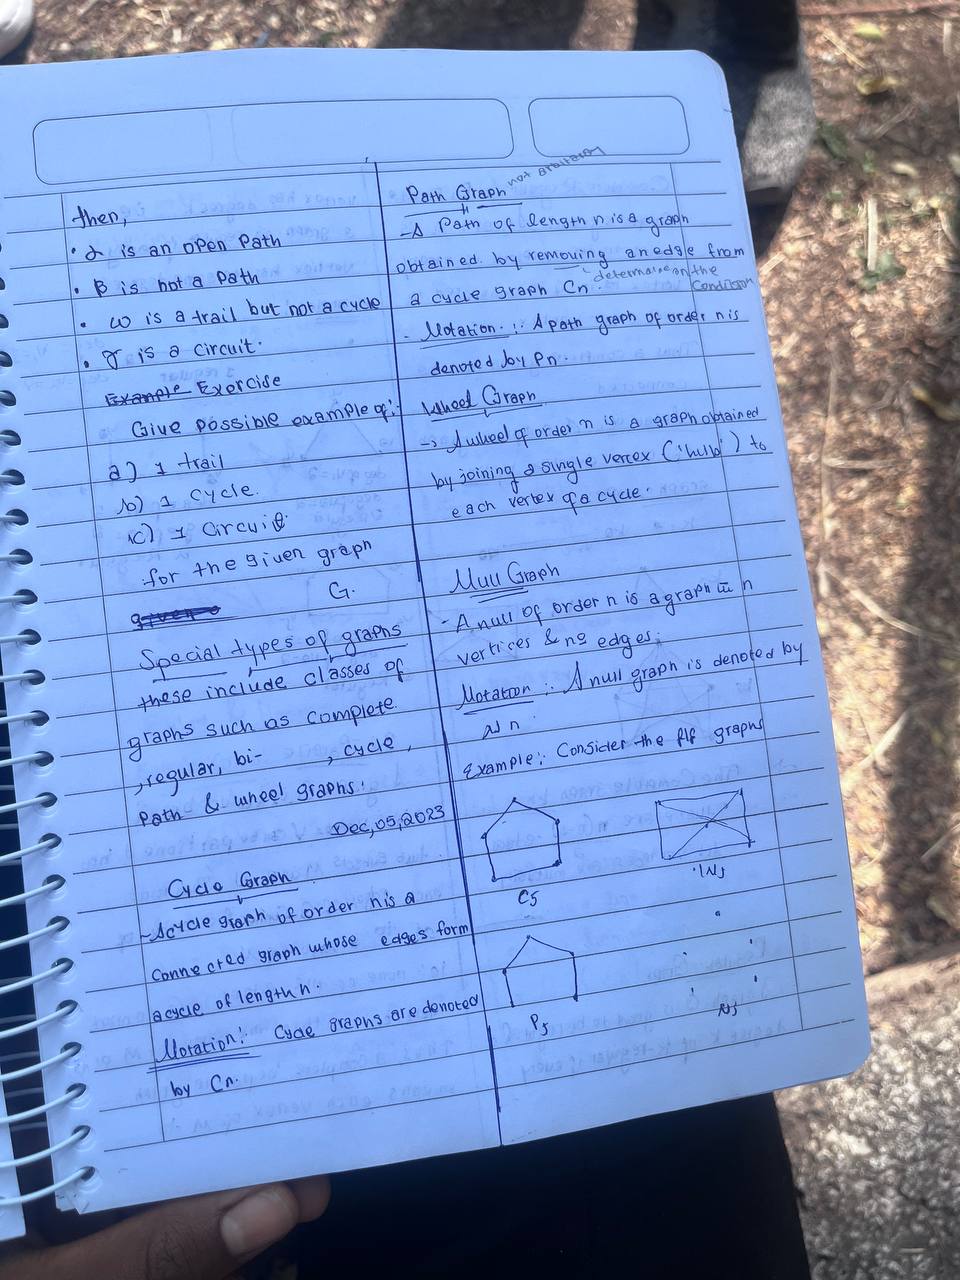 then,
• α is an open path
• β is not a path
• ω is a trail but not a cycle
• γ is a circuit.
Example Exercise
Give possible example of:
a) 1 trail
b) 1 cycle.
c) 1 circuit
for the given graph
G.
Special types of graphs
these include classes of
graphs such as complete
, regular, bi-      , cycle,
path & wheel graphs.
Dec, 05, 2023
Cycle Graph
- A cycle graph of order n is a
connected graph whose edges form
a cycle of length n.
Notation: Cycle graphs are denoted
by Cn.
Path Graph not arbitrary
- A Path of length n is a graph
obtained by removing an edge from
a cycle graph Cn. determine on the
condition
- Notation: A path graph of order n is
denoted by Pn.
Wheel Graph
- A wheel of order n is a graph obtained
by joining a single vertex ('hub') to
each vertex of a cycle.
Null Graph
- A null of order n is a graph w n
vertices & no edges.
Notation: A null graph is denoted by
N n
Example: Consider the flf graphs
C5
W5
P5
N5